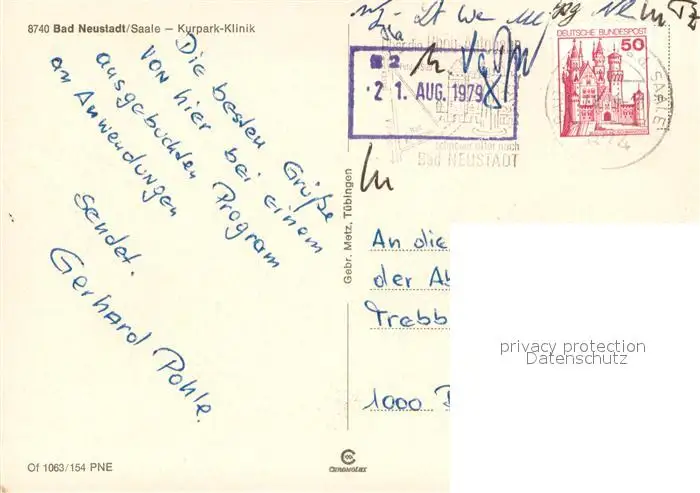 8740 Bad Neustadt/Saale — Kurpark-Klinik
Die besten Grüße
von hier bei einem
ausgebuchten Program
an Anwendungen
sendet.
Gerhard Pohle.
Of 1063/154 PNE
Gebr. Metz, Tübingen
CHROMOLUX
2 1. AUG. 1979
Bad NEUSTADT
DEUTSCHE BUNDESPOST
50
An die
der Ab
Trebb
1000
privacy protection
Datenschutz